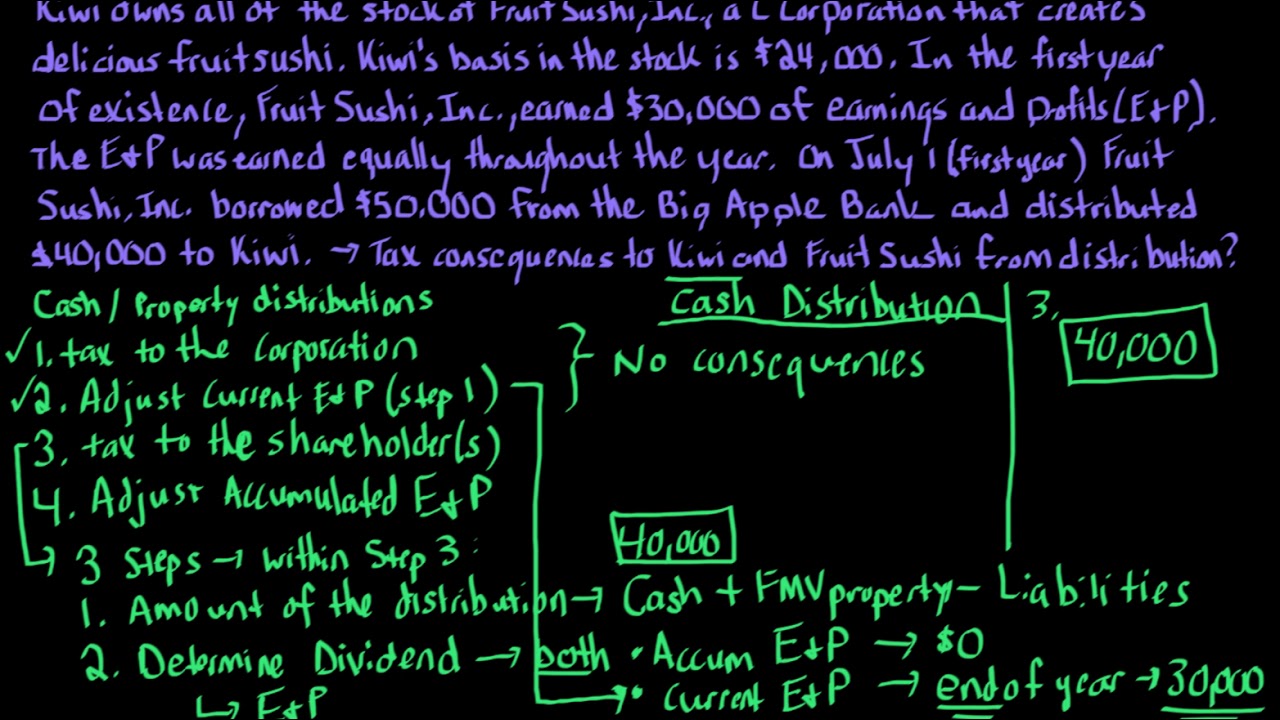 Kiwi owns all of the stock of Fruit Sushi, Inc., a C Corporation that creates
delicious fruit sushi. Kiwi's basis in the stock is $24,000. In the first year
of existence, Fruit Sushi, Inc., earned $30,000 of earnings and profits (E+P).
The E+P was earned equally throughout the year. On July 1 (first year) Fruit
Sushi, Inc. borrowed $50,000 from the Big Apple Bank and distributed
$40,000 to Kiwi. → Tax consequences to Kiwi and Fruit Sushi from distribution?
Cash / Property distributions
✓ 1. tax to the Corporation
✓ 2. Adjust Current E+P (step 1)
3. tax to the shareholder(s)
4. Adjust Accumulated E+P
↳ 3 Steps → within Step 3:
1. Amount of the distribution → Cash + FMV property - Liabilities
40,000
2. Determine Dividend → both • Accum E+P → $0
• Current E+P → end of year → 30,000
↳ E+P
Cash Distribution
} No consequences
3.
40,000